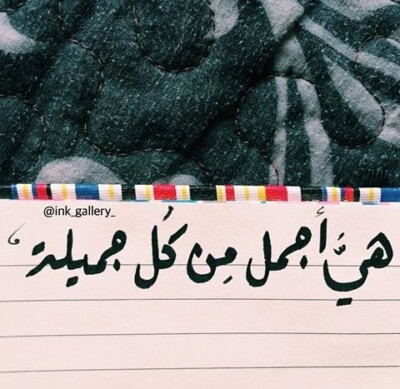 @ink_gallery_
هيَّ أجمل مِن كُل جميلة،